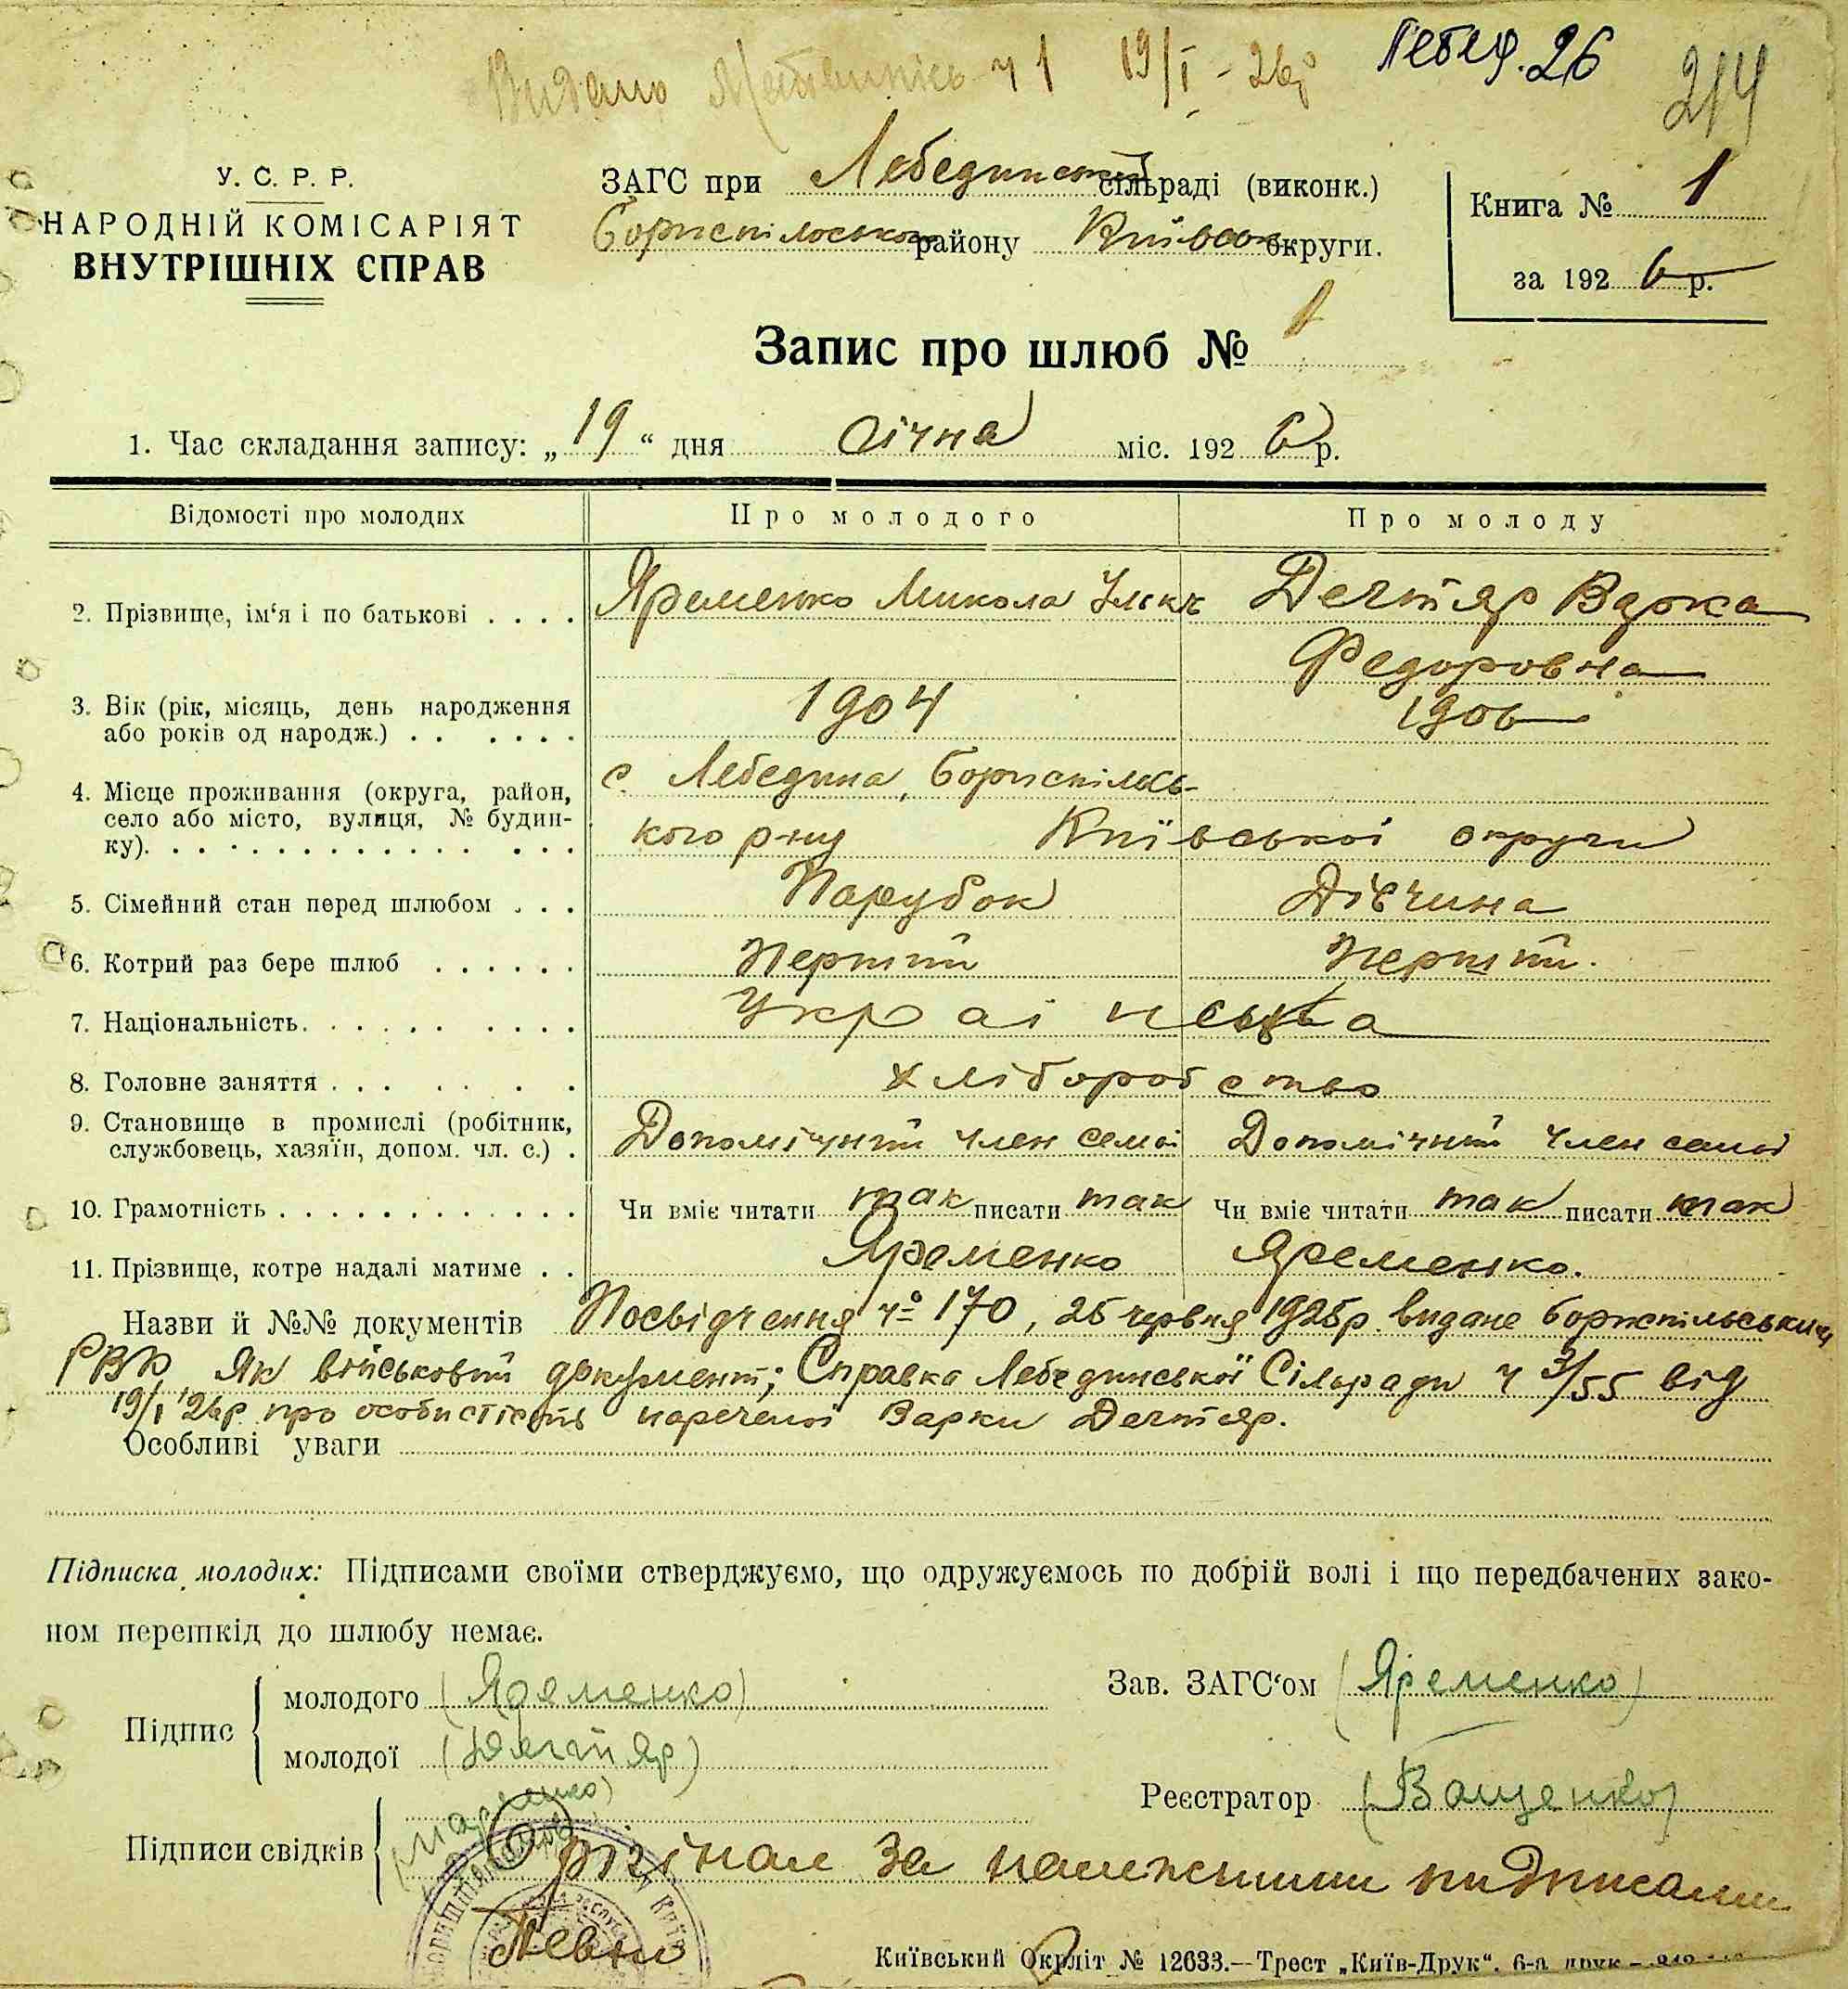 Видано Метвипись ч 1 19/I - 26р Лебед. 26
214
У. С. Р. Р.
НАРОДНІЙ КОМІСАРІЯТ
ВНУТРІШНІХ СПРАВ
ЗАГС при Лебединській сільраді (виконк.)
Бориспільського району Київськ округи.
Книга № 1
за 192 6 р.
Запис про шлюб № 1
1. Час складання запису: „ 19 “ дня січня міс. 192 6 р.
Відомості про молодих Про молодого Про молоду
2. Прізвище, ім‘я і по батькові . . . . Яременко Микола Ільк Дечтяр Варка
Федоровна
3. Вік (рік, місяць, день народження 1904 1906
або років од народж.) . . . . . .
4. Місце проживання (округа, район, с. Лебедина, Бориспільсь-
село або місто, вулиця, № будин- кого р-ну Київської округи
ку). . . . . . . . . . . . . . .
5. Сімейний стан перед шлюбом . . . Парубок Дівчина
6. Котрий раз бере шлюб . . . . . . Перший Перший.
7. Національність. . . . . . . . . . Українська
8. Головне заняття . . . . . . . хліборобство
9. Становище в промислі (робітник, Допомічний член семі Допомічний член семі
службовець, хазяїн, допом. чл. с.) .
10. Грамотність . . . . . . . . . . . . . Чи вміє читати так писати так Чи вміє читати так писати так
11. Прізвище, котре надалі матиме . . Яременко Яременко.
Назви й №№ документів Посвідчення ч° 170, 25 червня 1925р. видане Бориспільським
РВК Як військовий документ; Справка Лебединської Сільради ч 3/55 від
19/I 26р. про особистість нареченої Варки Дечтяр.
Особливі уваги
Підписка молодих: Підписами своїми стверджуємо, що одружуємось по добрій волі і що передбачених зако-
ном перешкід до шлюбу немає.
Підпис молодого (Яременко) Зав. ЗАГС‘ом (Яременко)
молодої (Дягтяр)
Реєстратор (Ващенко)
Підписи свідків
Орігінал за належними підписами
Певно
Київський Окрліт № 12633.—Трест „Київ-Друк“. 6-а друк —